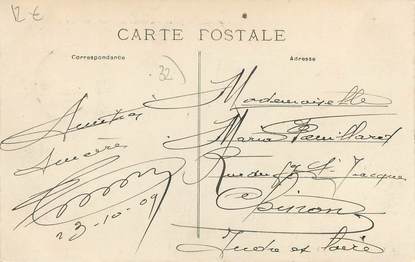 12 €
CARTE POSTALE
Correspondance
Adresse
32
Amitiés
Sincères
23-10-09
Mademoiselle
Maria
Rue du Fg St Jacques
Chinon
Indre et Loire